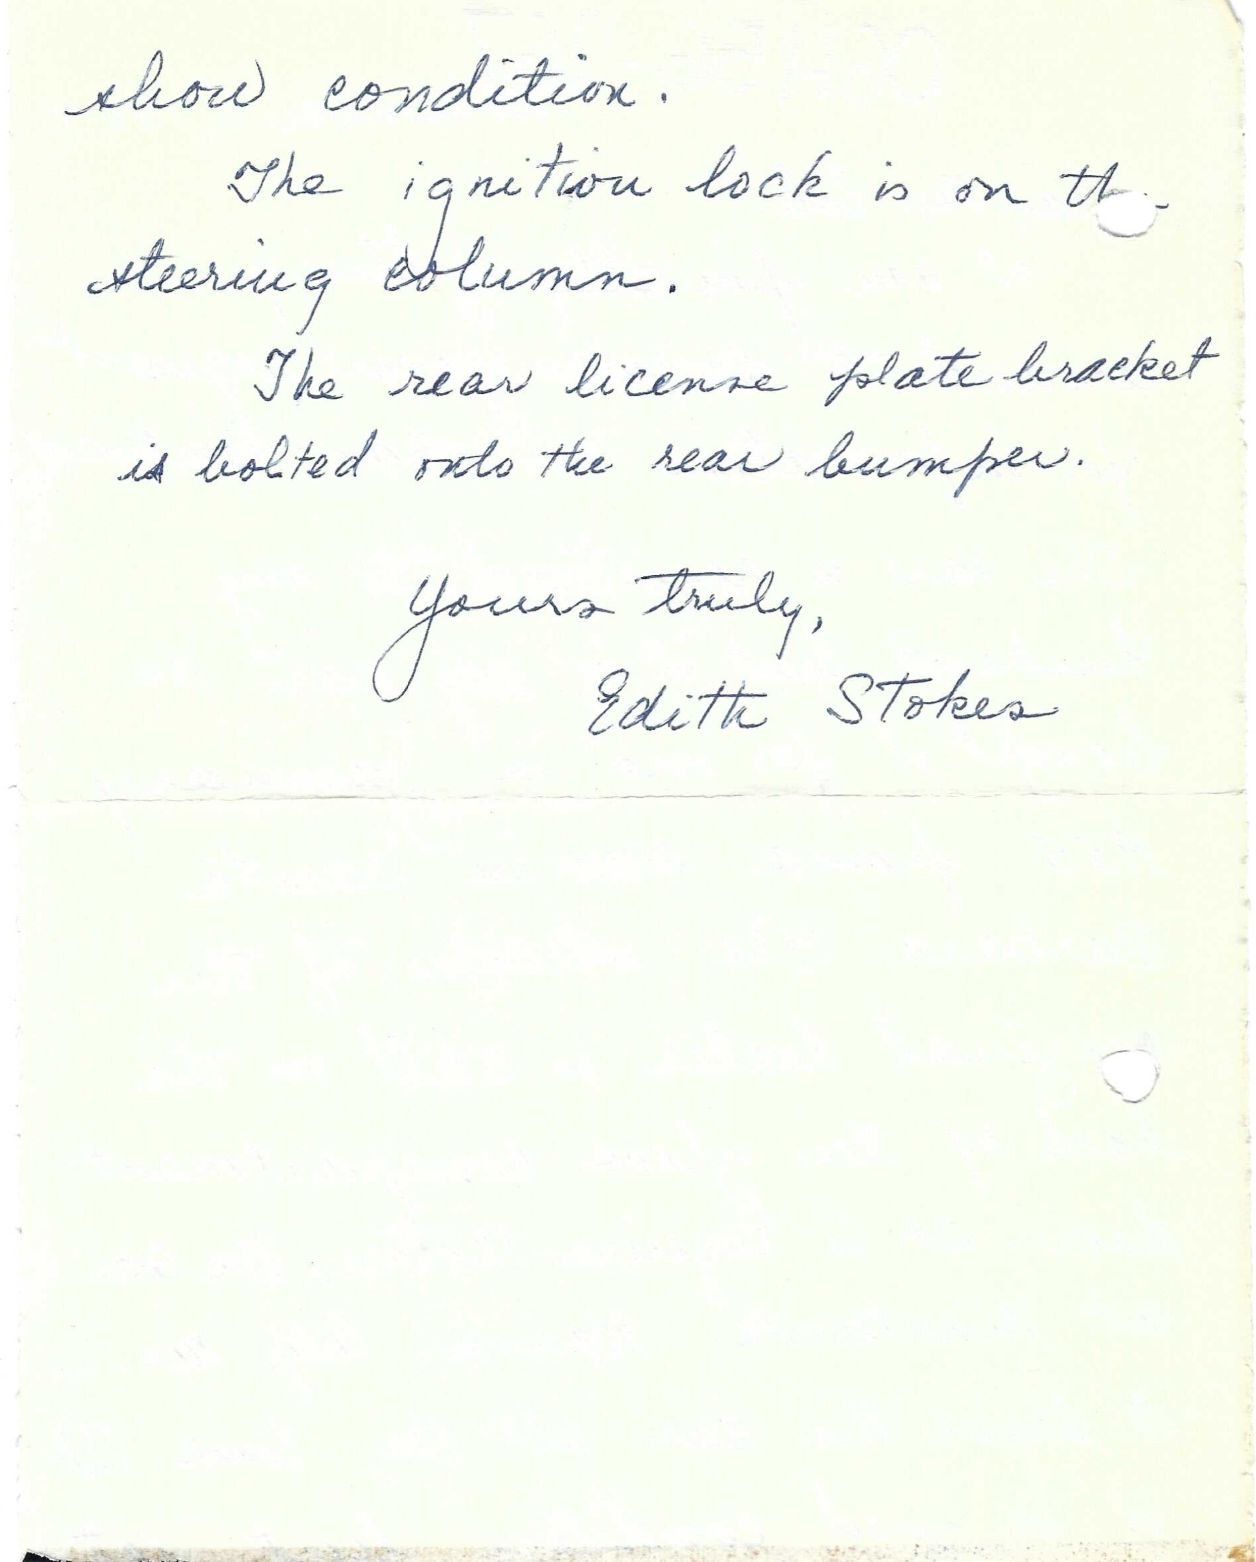 show condition.
The ignition lock is on th
steering column.
The rear license plate bracket
is bolted onto the rear bumper.
Yours truly,
Edith Stokes